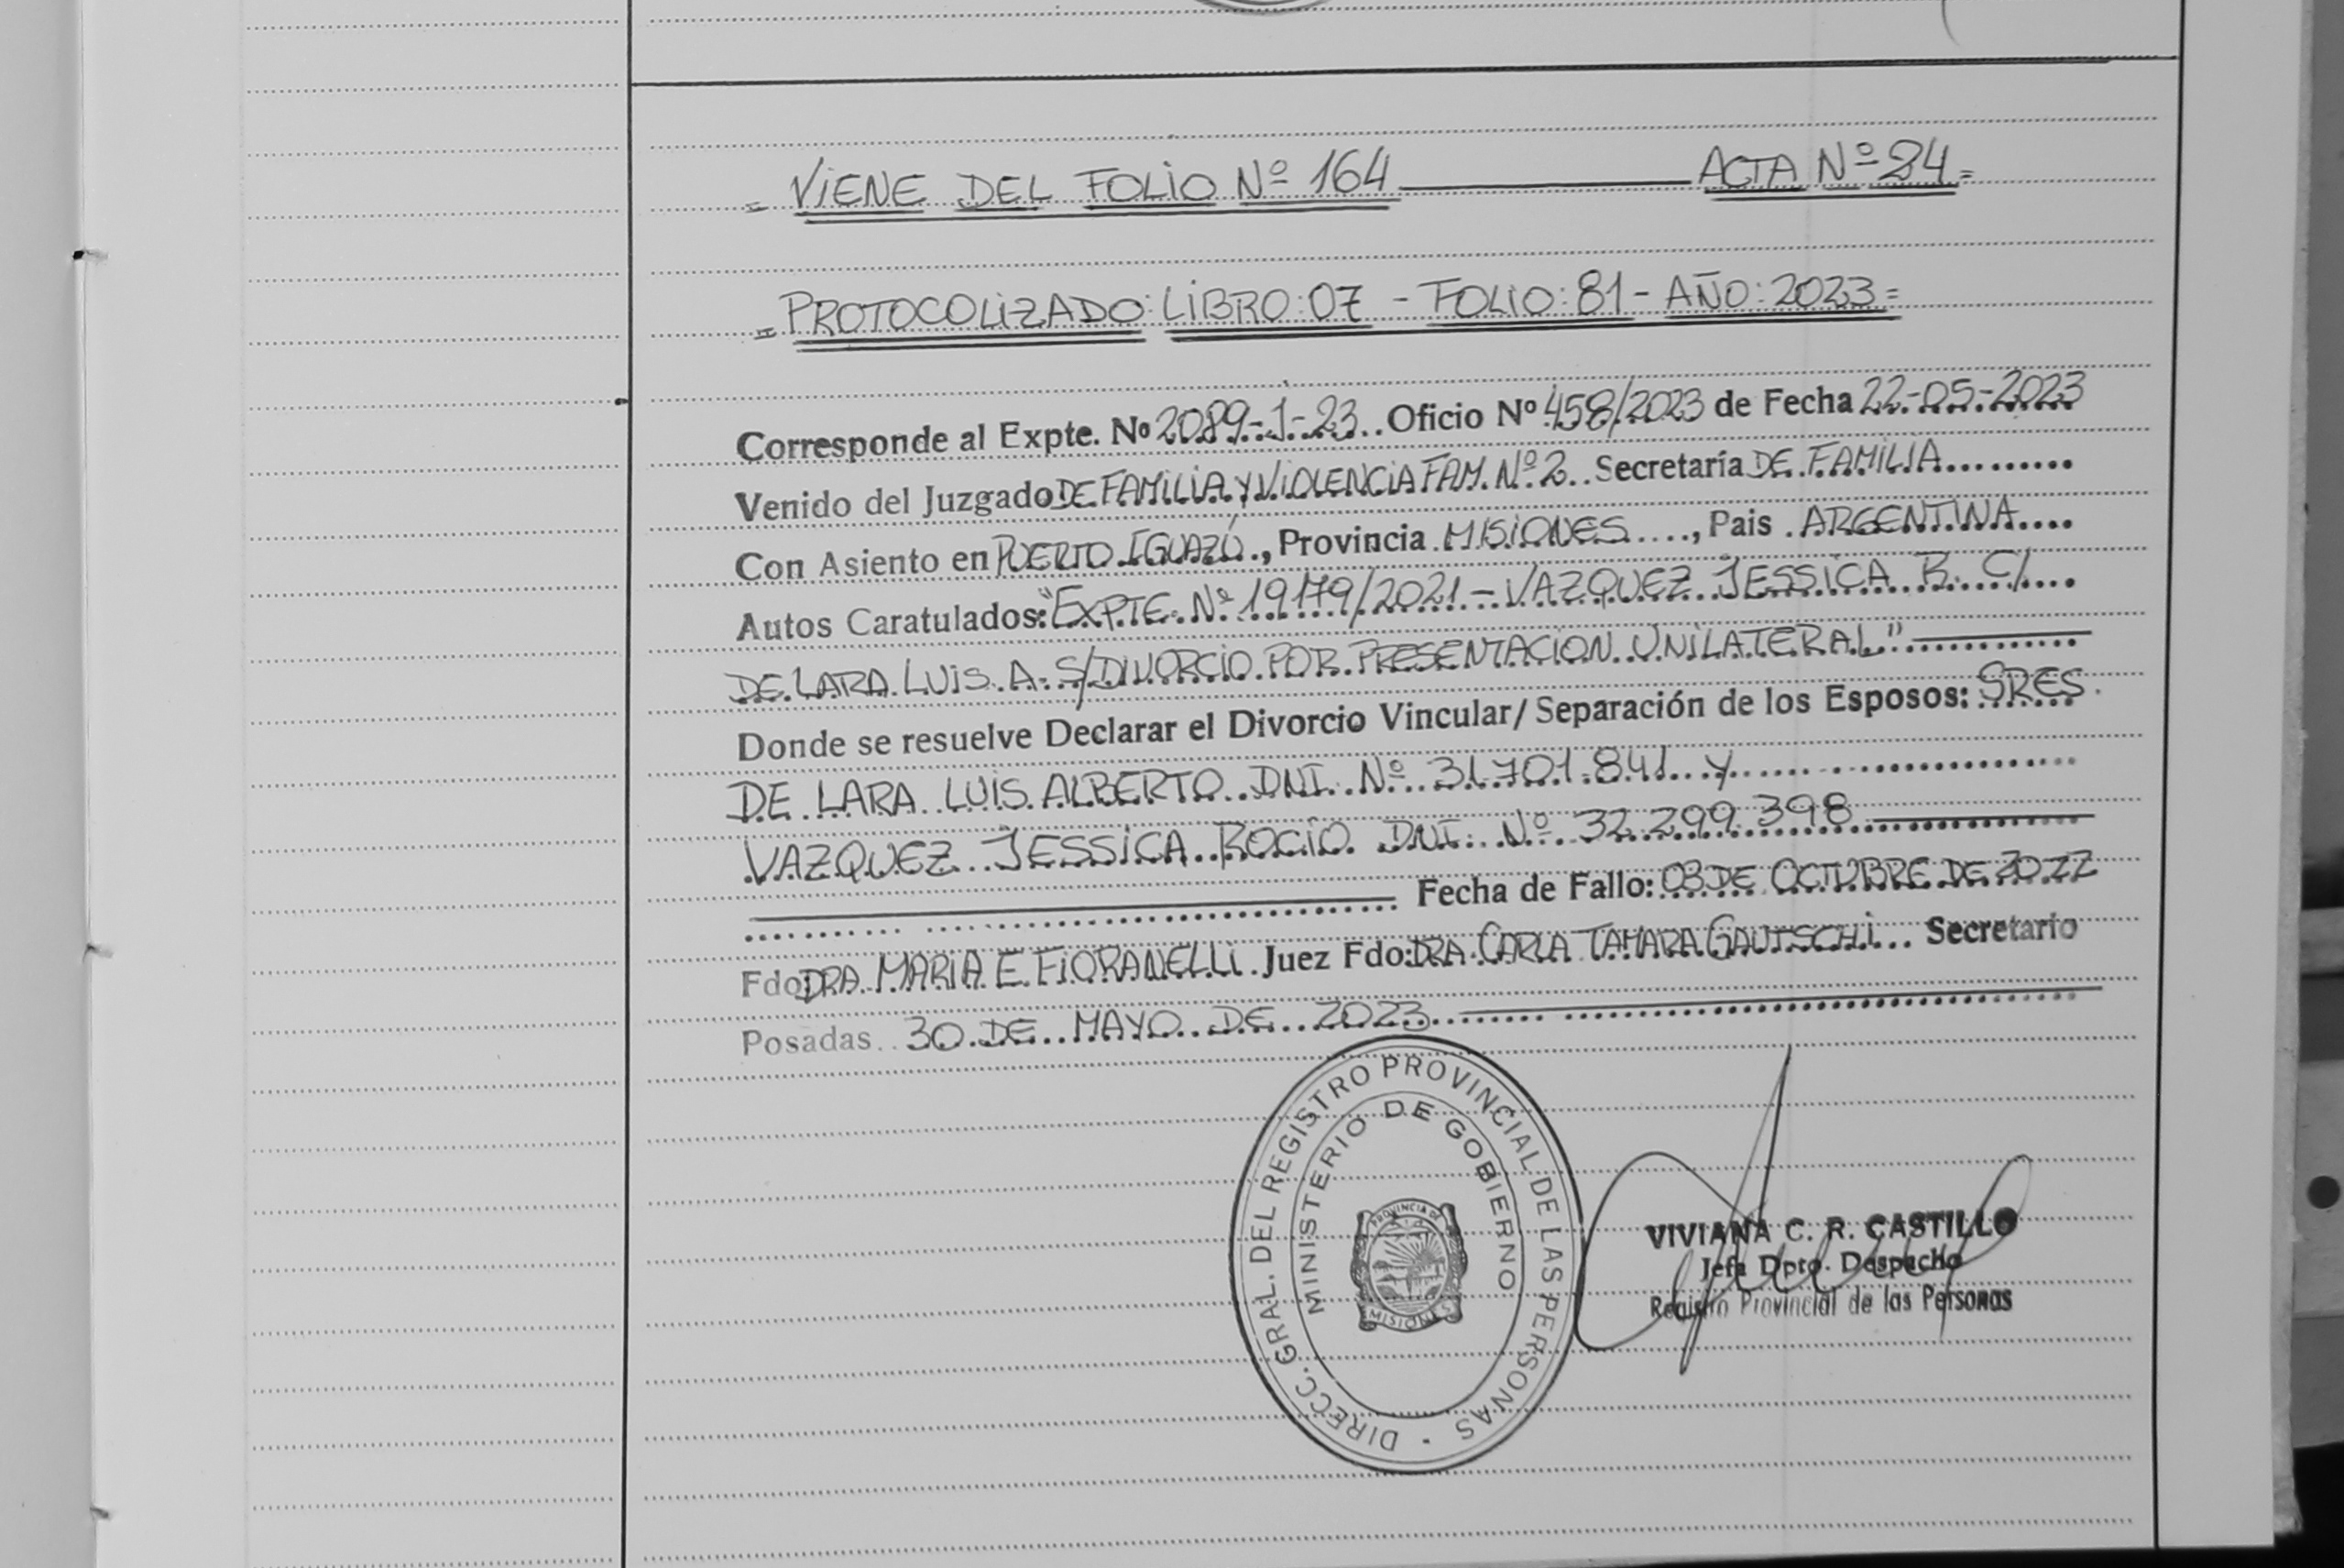 = VIENE DEL FOLIO Nº 164 ACTA Nº 84 =
= PROTOCOLIZADO: LIBRO: 07 - FOLIO: 81 - AÑO: 2023 =
Corresponde al Expte. Nº 2089-J-23.. Oficio Nº 458/2023 de Fecha 22-05-2023
Venido del Juzgado DE FAMILIA Y VIOLENCIA FAM. Nº 2.. Secretaría DE FAMILIA.........
Con Asiento en PUERTO IGUAZÚ., Provincia MISIONES....., Pais . ARGENTINA....
Autos Caratulados: "EXPTE. Nº 19179/2021 - VAZQUEZ JESSICA R. C/....
DE LARA LUIS A. S/DIVORCIO POR PRESENTACION UNILATERAL"
Donde se resuelve Declarar el Divorcio Vincular/Separación de los Esposos: SRES.
DE LARA LUIS ALBERTO DNI. Nº 31.701.841 Y
VAZQUEZ JESSICA ROCIO DNI. Nº 32.299.398
Fecha de Fallo: 03 DE OCTUBRE DE 2022
Fdo DRA. MARIA E. FIORANELLI. Juez Fdo: DRA. CARLA TAMARA GAUTSCHI... Secretario
Posadas.. 30 DE MAYO DE 2023
DIRECC. GRAL. DEL REGISTRO PROVINCIAL DE LAS PERSONAS
MINISTERIO DE GOBIERNO
PROVINCIA DE
MISIONES
VIVIANA C. R. CASTILLO
Jefa Dpto. Despacho
Registro Provincial de las Personas